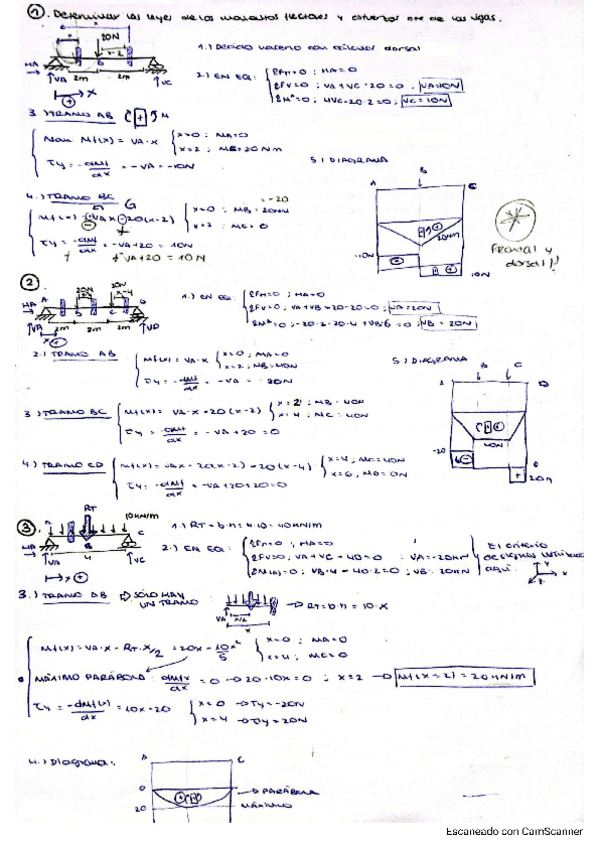 1. Determinar las leyes de los momentos flectores y esfuerzos de las vigas.
20N
x-2
HA
VA 2m B 2m VC
x
1.) Dibujo
2.) EN EQ: ΣFH=0 ; HA=0
ΣFV=0 ; VA+VC-20=0 ; VA=10N
ΣM=0 ; 4VC-20·2=0 ; VC=10N
3.) TRAMO AB M
Mf(x) = VA·x x=0 ; MA=0
x=2 ; MB=20Nm
Ty = -dMf/dx = -VA = -10N
5.) DIAGRAMA
A B C
20Nm
-10N
10N
Frontal y
dorsal!!
4.) TRAMO BC
Mf(x) = VAx - 20(x-2) x=0 ; MB=20Nm
x=2 ; MC=0
Ty = -dMf/dx = -VA+20 = 10N
+VA+20 = 10N
2
HA A 20N 20N x-4 D
VA 2m 2m 2m VD
1.) EN EQ: ΣFH=0 ; HA=0
ΣFV=0 ; VA+VB-20-20=0 ; VA=20N
ΣM=0 ; -20·2-20·4+VB·6=0 ; VB=20N
2.) TRAMO AB Mf(x) = VA·x x=0 ; MA=0
x=2 ; MB=40N
Ty = -dMf/dx = -VA = -20N
5.) DIAGRAMA
A B C D
40N
-20
20N
3.) TRAMO BC Mf(x) = VA·x-20(x-2) x=2 ; MB=40N
x=4 ; MC=40N
Ty = -dMf/dx = -VA+20=0
4.) TRAMO CD Mf(x) = VAx-20(x-2)-20(x-4) x=4 ; MC=40N
x=6 ; MD=0N
Ty = -dMf/dx = -VA+20+20=0
3. RT 10kN/m
HA B C
VA 4 VC
x
1.) RT=b·h=4·10=40kN/m
2.) EN EQ: ΣFH=0 ; HA=0
ΣFV=0, VA+VC-40=0 ; VA=20kN
ΣM(A)=0 ; VB·4-40·2=0 ; VB=20kN
El criterio
de signos
aquí:
3.) TRAMO AB → SÓLO HAY
UN TRAMO
VA x/2
x
→ RT=b·h=10·x
Mf(x) = VA·x - RT·x/2 = 20x - 10/5 x² x=0 ; MA=0
x=4 ; MC=0
MÁXIMO PARÁBOLA: dMfx/dx = 0 → 20-10x=0 ; x=2 → Mf(x=2)=20kN/m
Ty = -dMf(x)/dx = 10x-20 x=0 → Ty=-20N
x=4 → Ty=20N
4.) Diagrama:
A C
0
20
→ PARÁBOLA
MÁXIMO
Escaneado con CamScanner